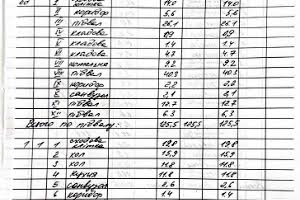 I клітка 14.0 14.0
II коридор 5,6 5,6
III підвал 26.1 26.1
IV кладова 0,9 0,9
V кладова
VI кладова 4.7 4.7
VII котельня 9.2 9.2
VIII підвал 40.3 40.3
IX коридор 2,2
X санвузол 2,1 2,1
XI підвал 12.7 12.7
XII підвал 6.3 6.3
Всього по підвалу: 125,5 125,5 125,5
1 1 1 сходова клітка 12.8 12.8
2 хол 15,9 15.9
3 хол 11.8 11.8
4 кухня 11.8 11.8
5 санвузол 2,6 2,6
6 коридор 1.4 1.4